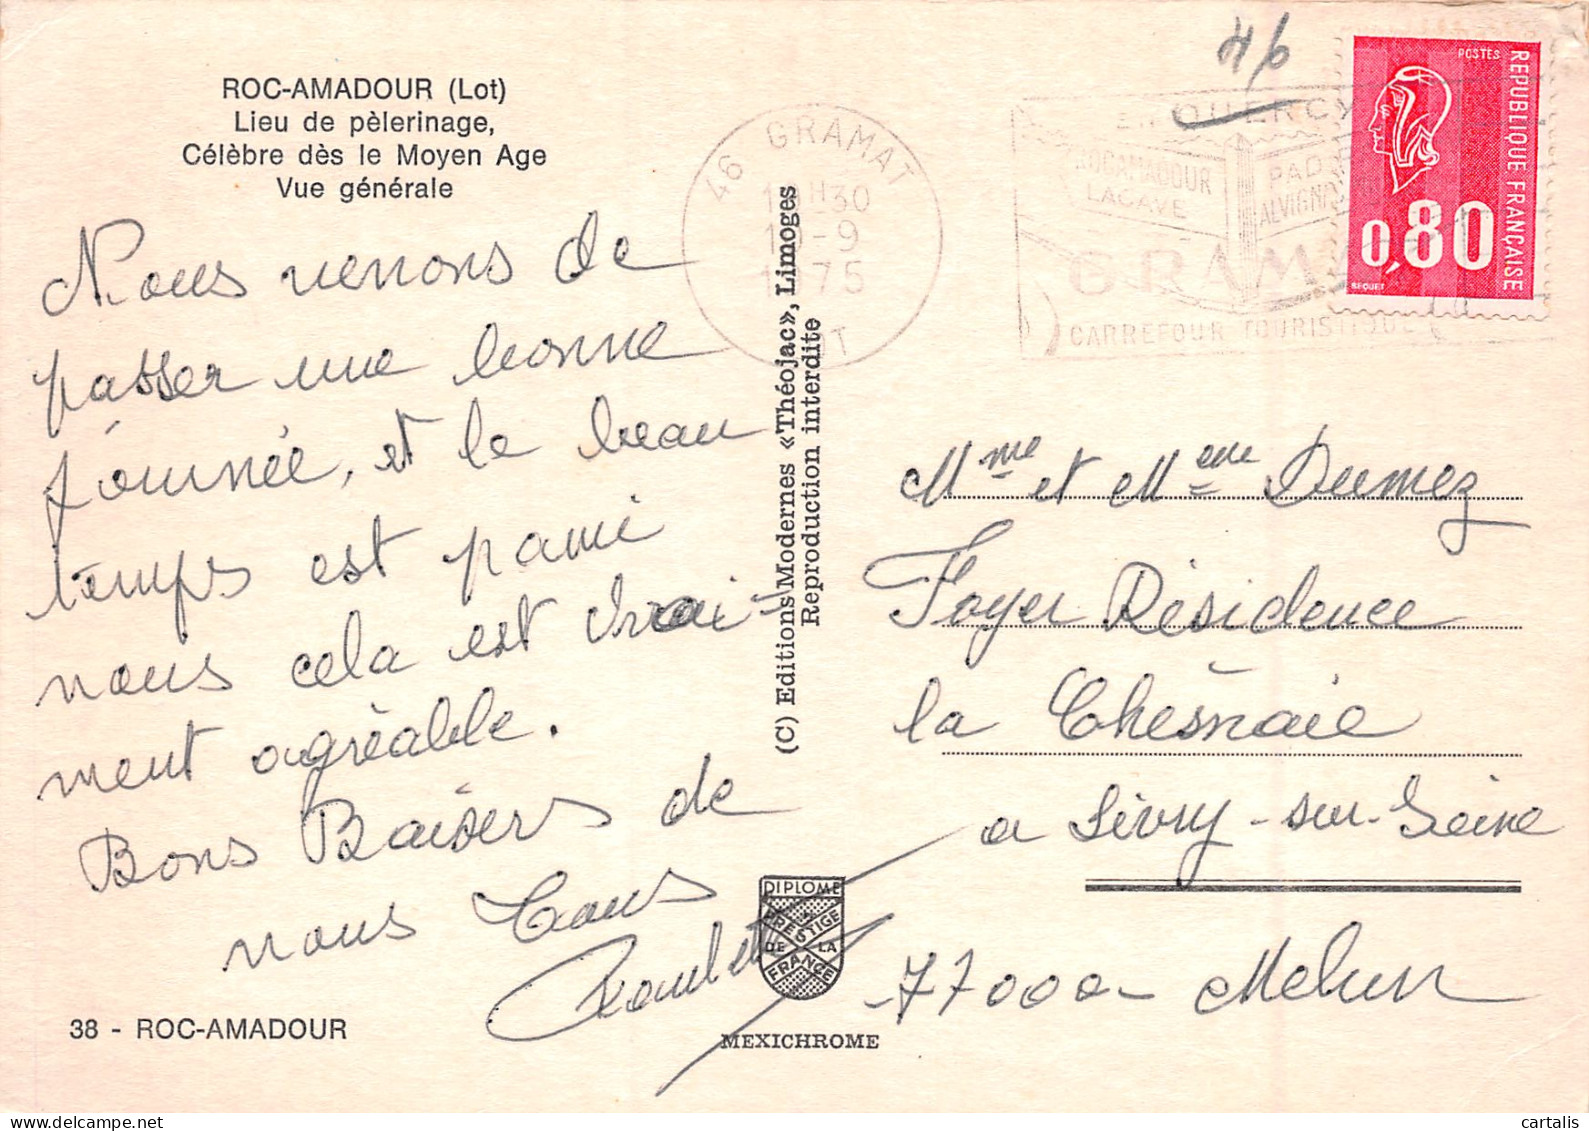 ROC-AMADOUR (Lot)
Lieu de pèlerinage,
Célèbre dès le Moyen Age
Vue générale
Nous venons de
passer une bonne
journée, et le beau
temps est parmi
nous cela est vrai-
ment agréable.
Bons Baisers de
nous tous
38 - ROC-AMADOUR
(C) Editions Modernes «Théojac», Limoges
Reproduction interdite
DIPLOME
PRESTIGE
DE LA
FRANCE
MEXICHROME
46 GRAMAT
30
-9
1975
46
EN QUERCY
ROCAMADOUR
LACAVE
PAD
ALVIGN
GRAMA
CARREFOUR TOURISTIQUE
POSTES
REPUBLIQUE FRANÇAISE
0,80
BEQUET
Mme et Mme Dumez
Foyer Résidence
la Chésnaie
a Livry-sur-Seine
77000- Melun
cartalis